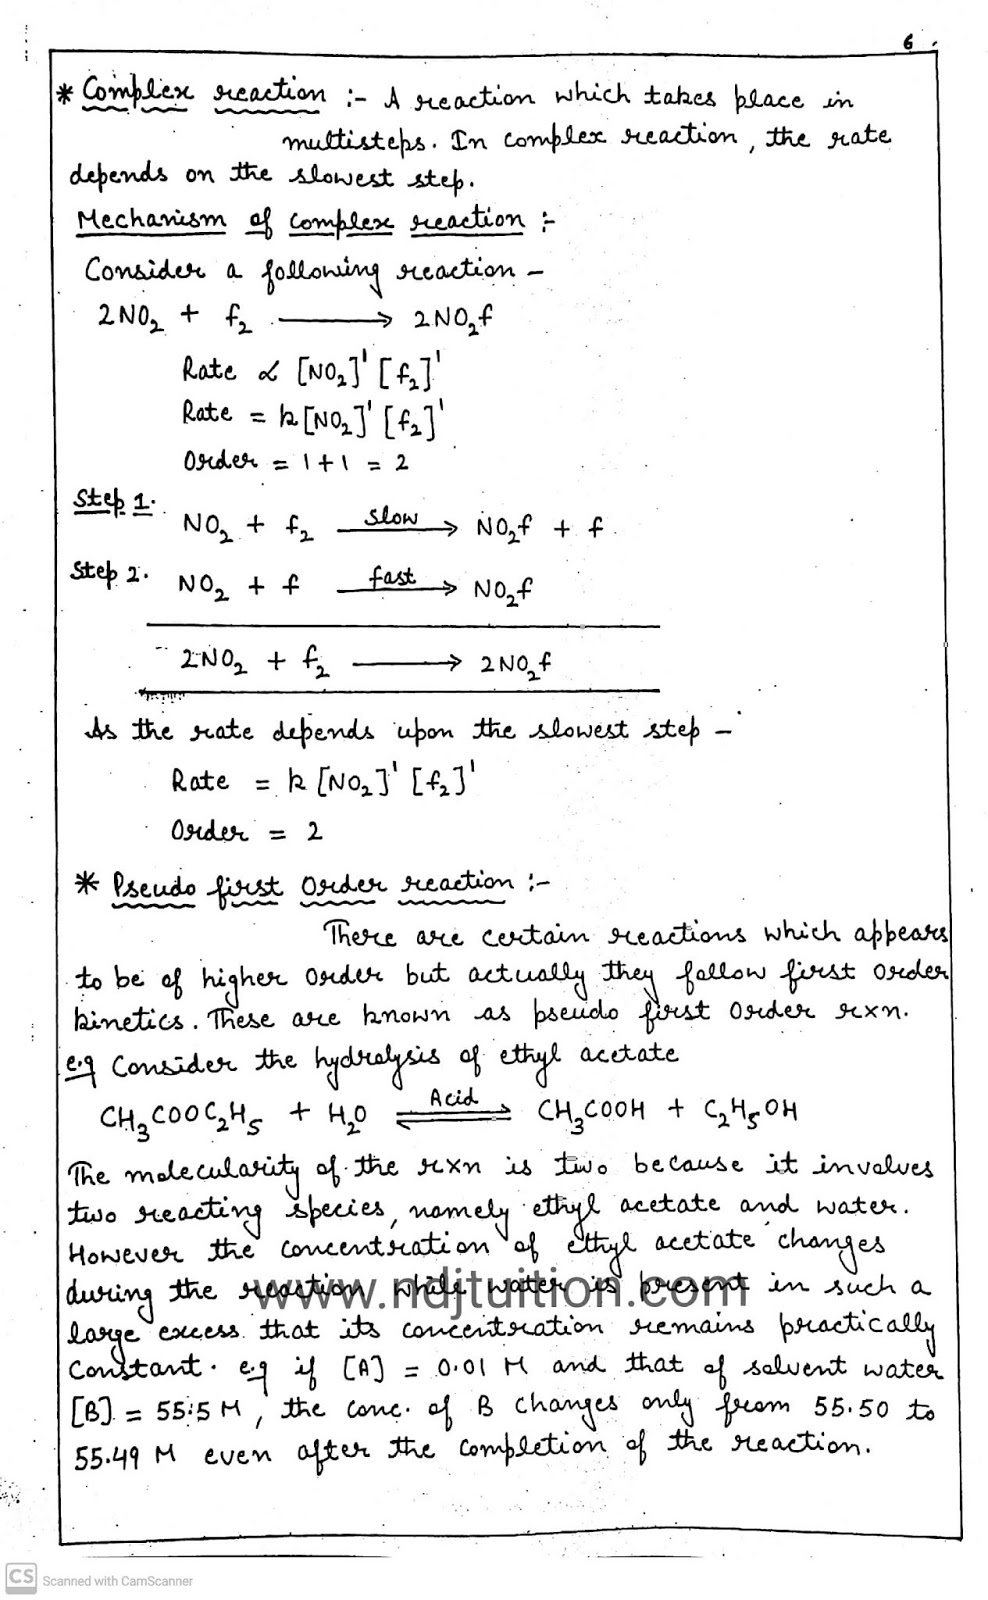 6
* Complex reaction :- A reaction which takes place in
multisteps. In complex reaction, the rate
depends on the slowest step.
Mechanism of complex reaction :-
Consider a following reaction -
2NO₂ + f₂ ⟶ 2NO₂f
Rate ∝ [NO₂]¹ [f₂]¹
Rate = k[NO₂]¹ [f₂]¹
Order = 1+1 = 2
Step 1. NO₂ + f₂ —slow→ NO₂f + f
Step 2. NO₂ + f —fast→ NO₂f
2NO₂ + f₂ ⟶ 2NO₂f
As the rate depends upon the slowest step -
Rate = k [NO₂]¹ [f₂]¹
Order = 2
* Pseudo first Order reaction :-
There are certain reactions which appears
to be of higher order but actually they follow first order
kinetics. These are known as pseudo first order rxn.
e.g Consider the hydrolysis of ethyl acetate
CH₃COOC₂H₅ + H₂O ⇌ Acid CH₃COOH + C₂H₅OH
The molecularity of the rxn is two because it involves
two reacting species, namely ethyl acetate and water.
However the concentration of ethyl acetate changes
during the reaction while water is present in such a
www.ndjtuition.com
large excess that its concentration remains practically
Constant. e.g if [A] = 0.01 M and that of solvent water
[B] = 55.5 M, the conc. of B changes only from 55.50 to
55.49 M even after the completion of the reaction.
CS Scanned with CamScanner